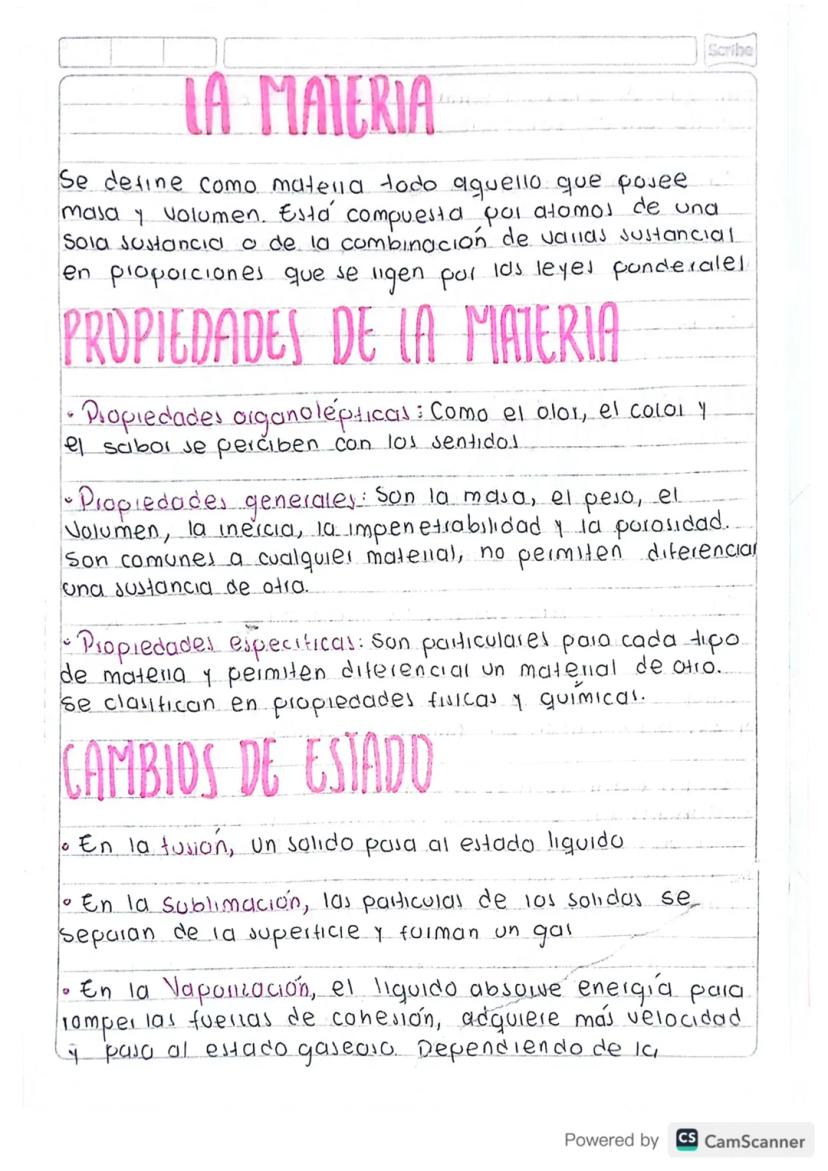 Scribe
LA MATERIA
Se define como materia todo aquello que posee
masa y volumen. Está compuesta por atomos de una
sola sustancia o de la combinación de varias sustancias
en proporciones que se rigen por las leyes ponderales
PROPIEDADES DE LA MATERIA
• Propiedades organolépticas: Como el olor, el color y
el sabor se perciben con los sentidos
• Propiedades generales: Son la masa, el peso, el
volumen, la inercia, la impenetrabilidad y la porosidad.
Son comunes a cualquier material, no permiten diferenciar
una sustancia de otra.
• Propiedades especificas: Son particulares para cada tipo
de materia y permiten diferenciar un material de otro.
Se clasifican en propiedades fisicas y químicas.
CAMBIOS DE ESTADO
• En la fusión, un solido pasa al estado liquido
• En la Sublimación, las particulas de los solidos se
separan de la superficie y forman un gas
• En la Vaporización, el liquido absorve energía para
romper las fuerzas de cohesión, adquiere más velocidad
y pasa al estado gaseoso. Dependiendo de la
Powered by CS CamScanner